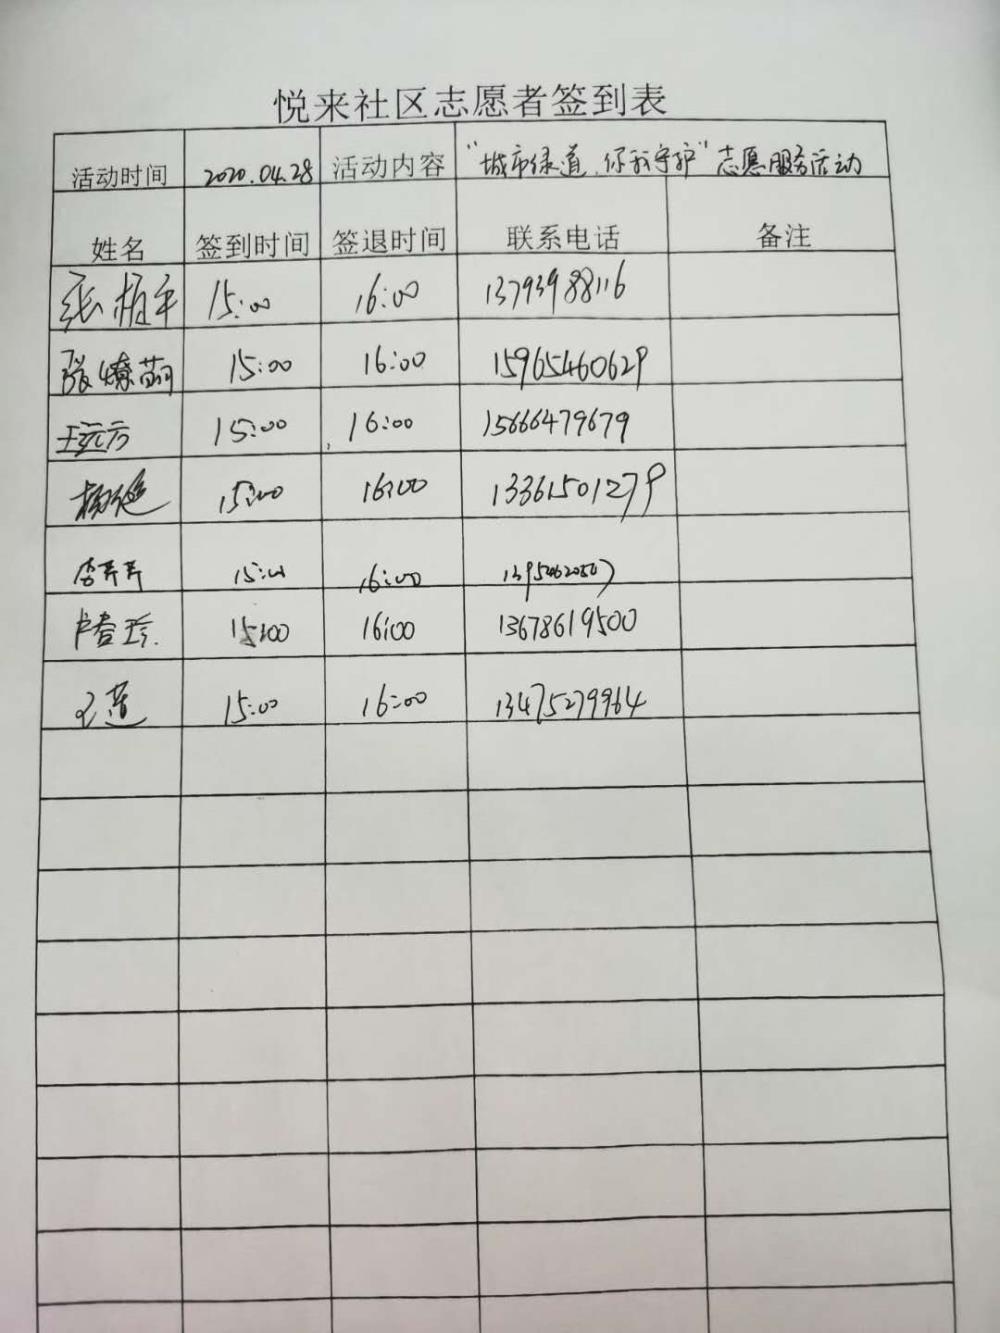 悦来社区志愿者签到表
活动时间 2020.04.28 活动内容 "城市绿道,你我守护"志愿服务活动
姓名 签到时间 签退时间 联系电话 备注
张植平 15:00 16:00 13793988116
张燎茹 15:00 16:00 15965460629
王远方 15:00 16:00 15666479679
15:00 16:00 13361501279
李卉卉 15:00 16:00
卢春珍. 15:00 16:00 13678619500
王莲 15:00 16:00 13475279964